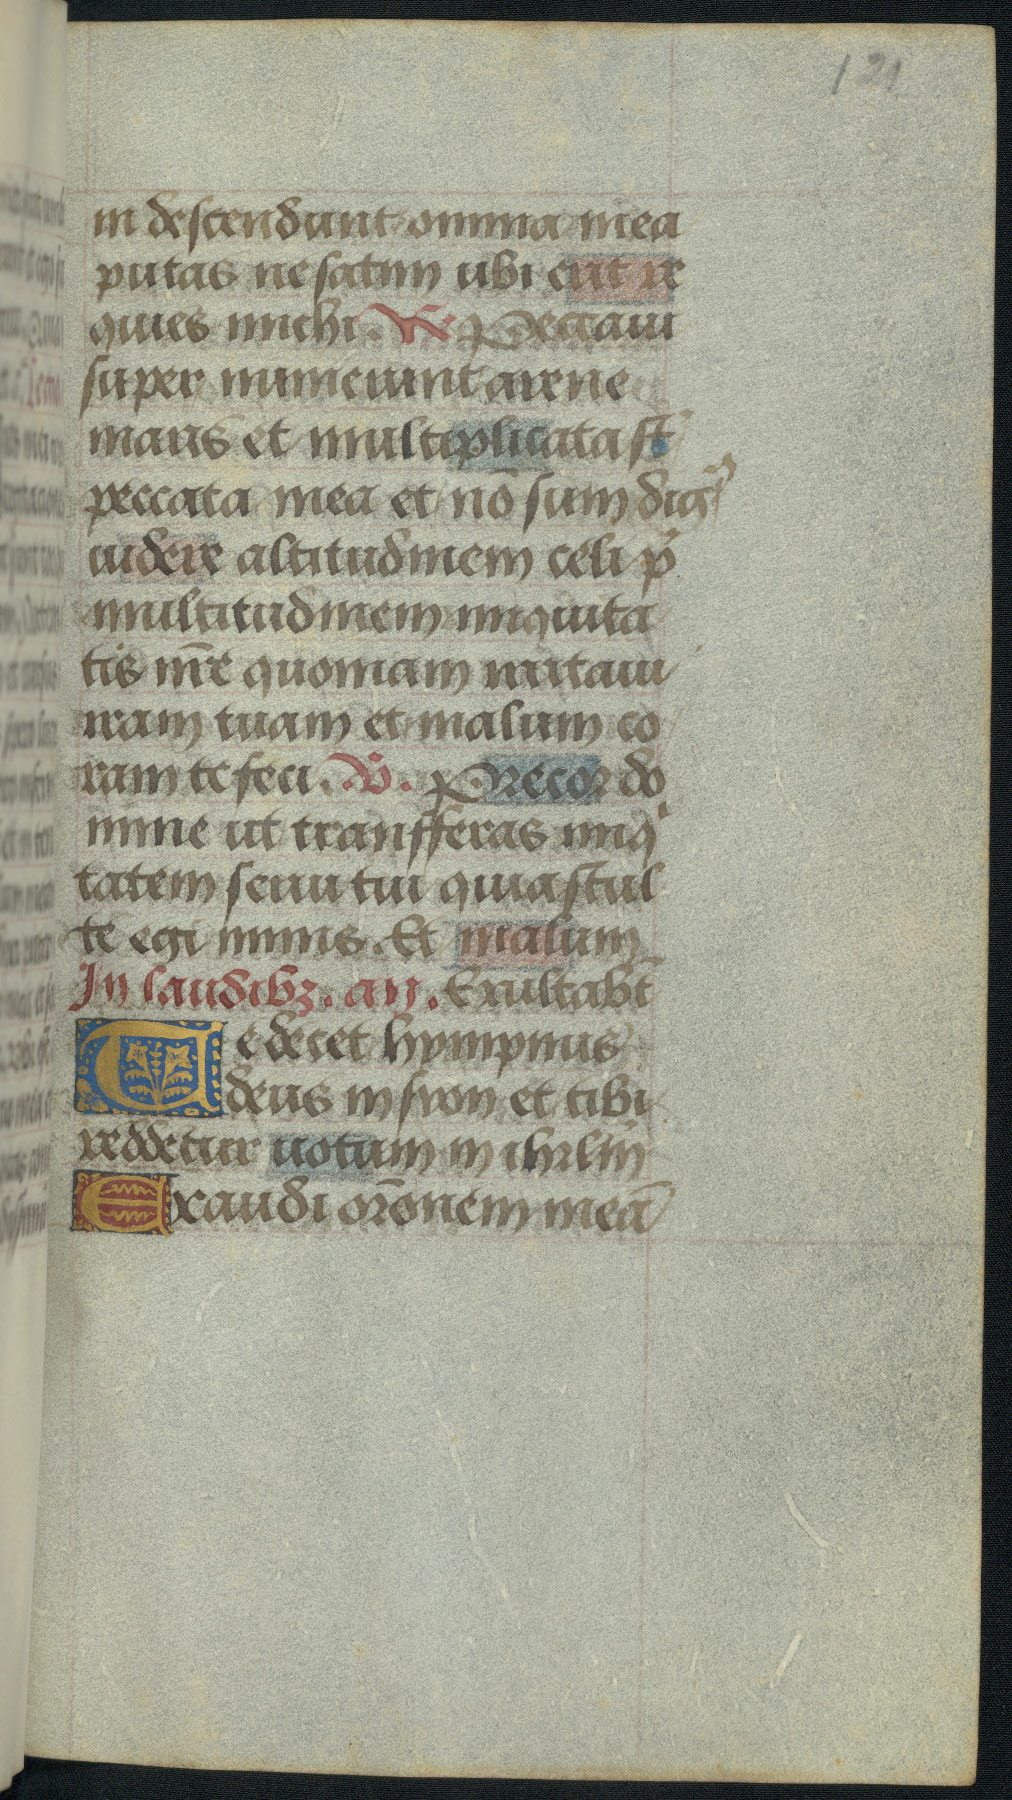 121
in descendunt omnia mea
putas ne saltim ubi erit re
quies michi. ℟. Peccaui
super numerum arene
maris et multiplicata st̄
peccata mea et nō sum dig
uidere altitudinem celi p̄
multitudinem iniquita
tis mee quoniam irritaui
iram tuam et malum co
ram te feci. ℣. Precor do
mine ut transfferas iniq
tatem serui tui quia stul
te egi nimis. Et malum
In laudibz. an. Exultabt̄
Te decet hympnus
deus in syon et tibi
reddetur uotum in ihrlm̄
Exaudi orōnem meā